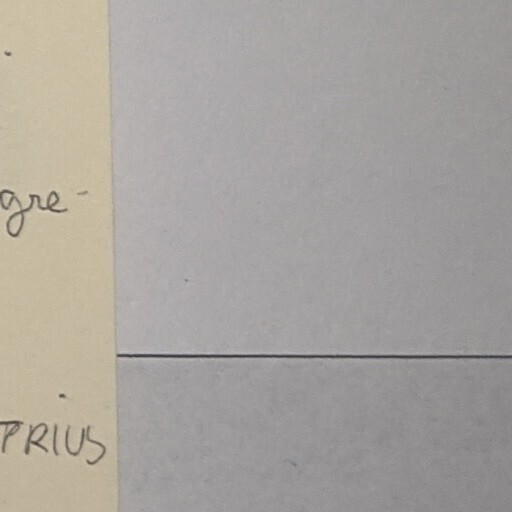 gre-
PRIUS